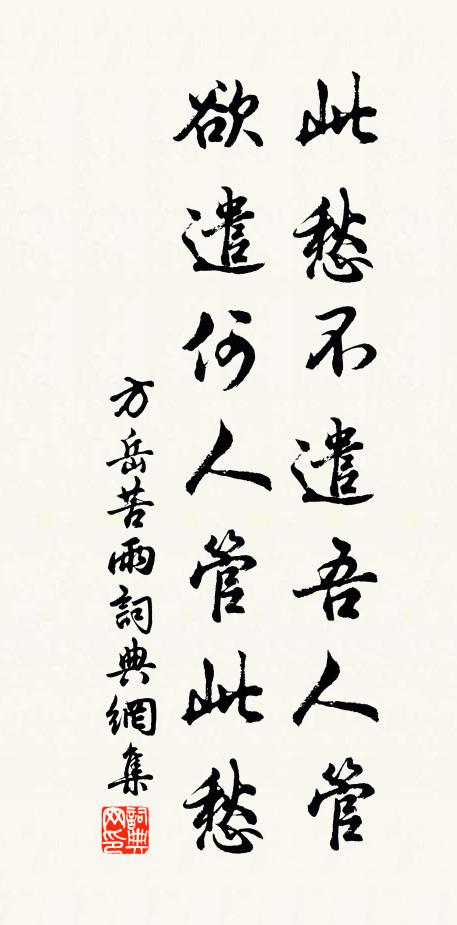 此愁不遣吾人管
欲遣何人管此愁
方岳苦雨詞典網集
詞典网印